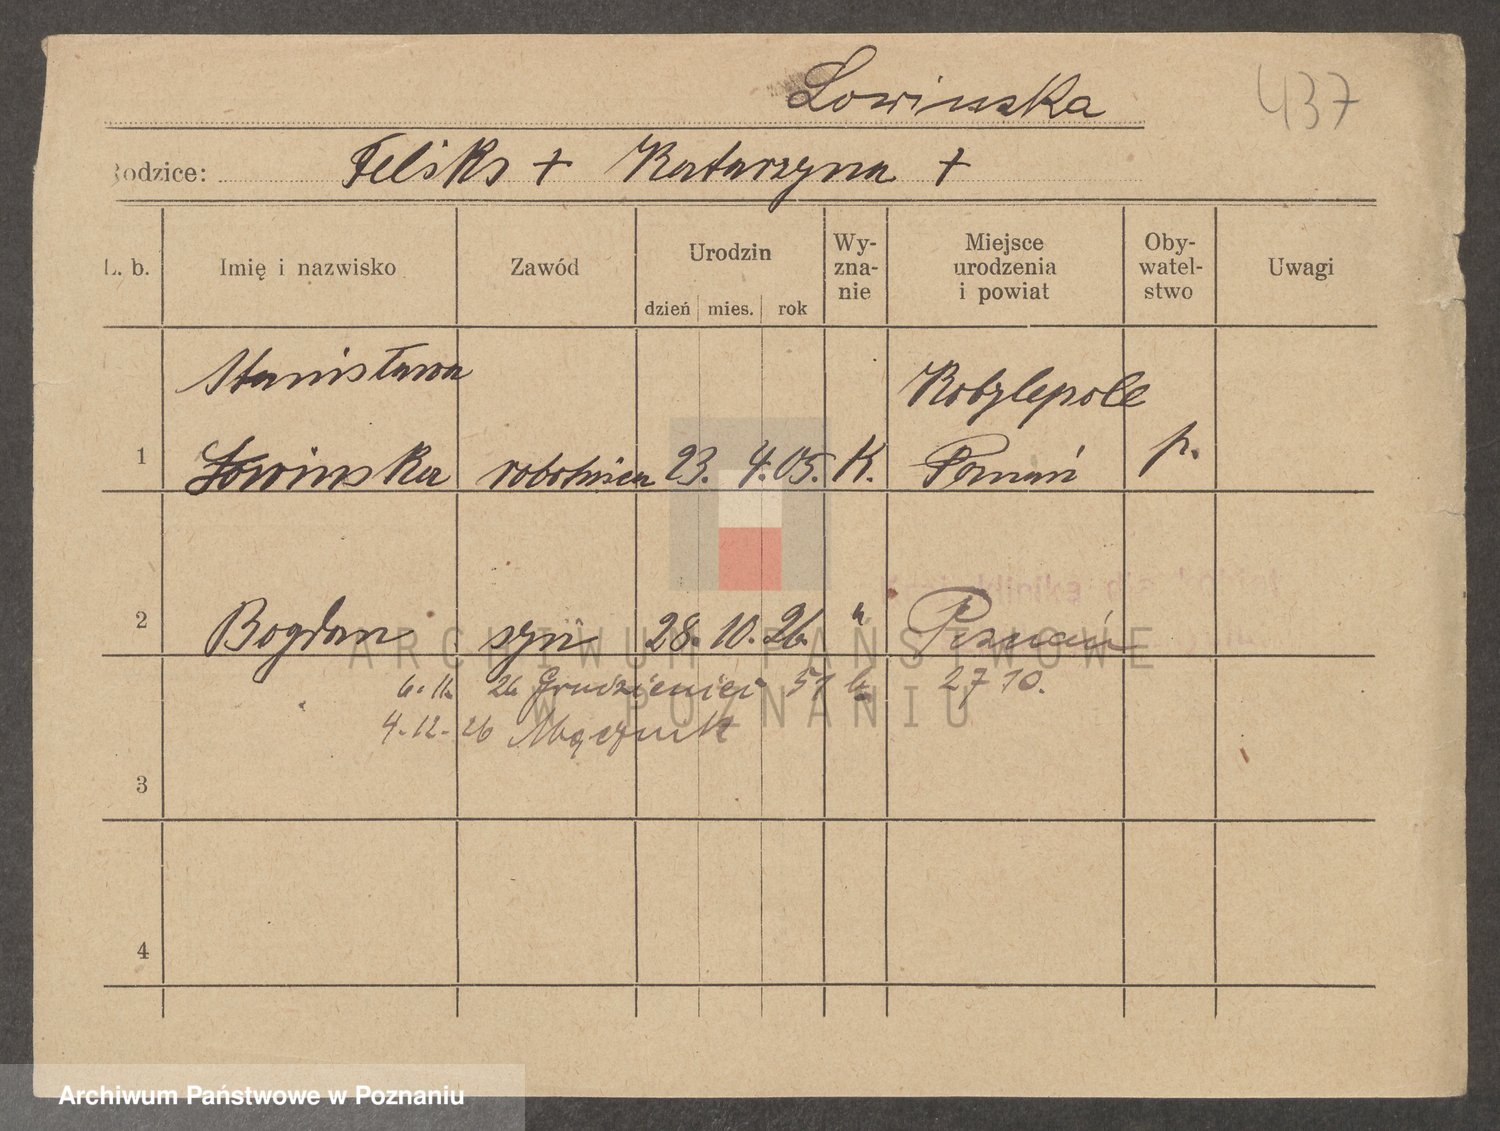 Łowinska
437
Rodzice: Feliks + Katarzyna +
L. b. Imię i nazwisko Zawód Urodzin dzień mies. rok Wy-zna-nie Miejsce urodzenia i powiat Oby-watel-stwo Uwagi
Stanisława Kobylepole
1 Łowinska robotnica 23. 4. 05. K. Poznań p.
2 Bogdan syn 28. 10. 26. " Poznań
6. 11. 26 51 27 10.
4-12-26 Mącznik
3
4
ARCHIWUM PAŃSTWOWE
W POZNANIU
Archiwum Państwowe w Poznaniu